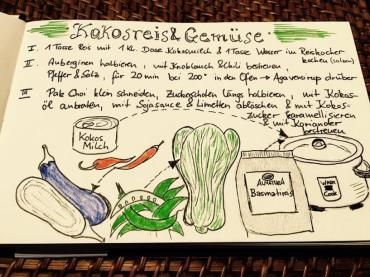 Kokosreis & Gemüse
I. 1 Tasse Reis mit 1 Kl. Dose Kokosmilch & 1 Tasse Wasser im Reiskocher
kochen (salzen)
II. Auberginen halbieren, mit Knoblauch & Chili bestreuen
Pfeffer & Salz, für 20 min bei 200° in den Ofen → Agavensirup drüber
III Pak Choi klein schneiden, Zuckerschoten längs halbieren, mit Kokos-
öl anbraten, mit Sojasauce & Limetten ablöschen & mit Kokos-
zucker karamellisieren
& mit Koriander
bestreuen
Kokos
Milch
Basmatireis
Warm
Cook